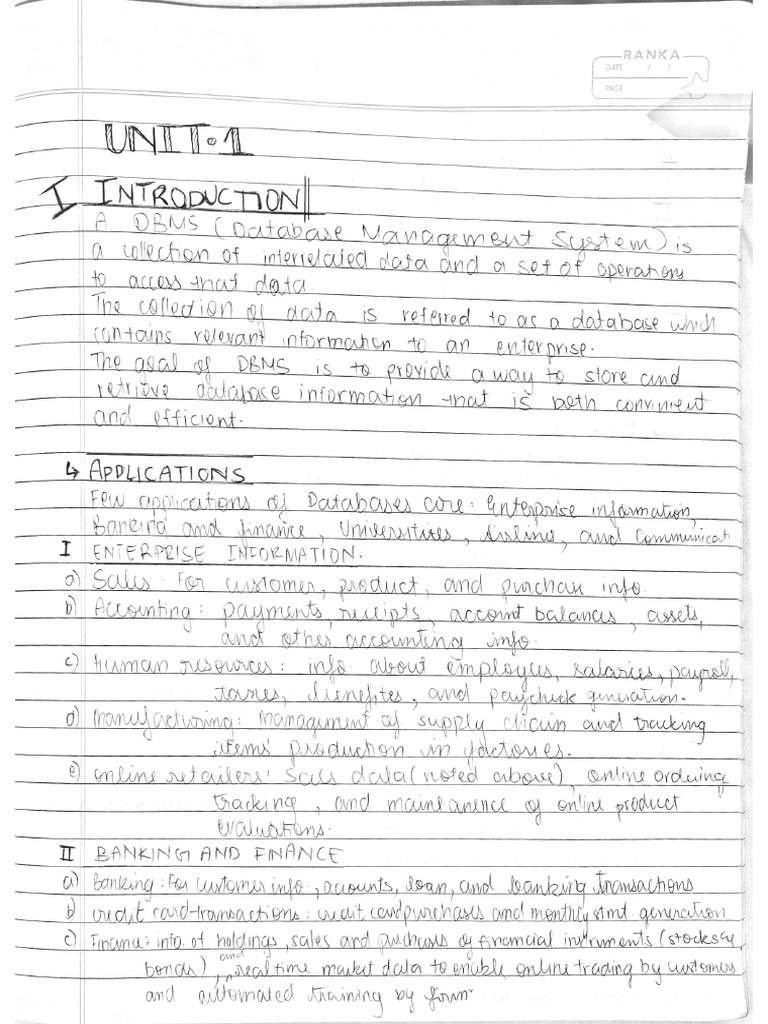 RANKA
DATE / /
PAGE
UNIT.1
I INTRODUCTION
A DBMS (Database Management System) is
a collection of interrelated data and a set of operations
to access that data.
The collection of data is referred to as a database which
contains relevant information to an enterprise.
The goal of DBMS is to provide a way to store and
retrieve database information that is both convinient
and efficient.
↳ APPLICATIONS
Few applications of Databases are: Enterprise information,
Banking and finance, Universities, Airlines, and Communicati
I ENTERPRISE INFORMATION.
a) Sales: For customer, product, and purchase info.
b) Accounting: payments, receipts, account balances, assets,
and other accounting info.
c) Human resources: info about employees, salaries, payroll,
taxes, benefites, and paycheck generation.
d) Manufacturing: Management of supply chain and tracking
items' production in factories.
e) online retailers: Sales data (noted above), online ordering
tracking, and maintanence of online product
evaluations.
II BANKING AND FINANCE
a) Banking: For customer info, accounts, loan, and banking transactions
b) credit card-transactions: credit card purchases and monthly stmt. generation
c) Finance: info. of holdings, sales and purchases of financial instruments (stocks &
bonds), and real time market data to enable online trading by customers
and automated training by firm.